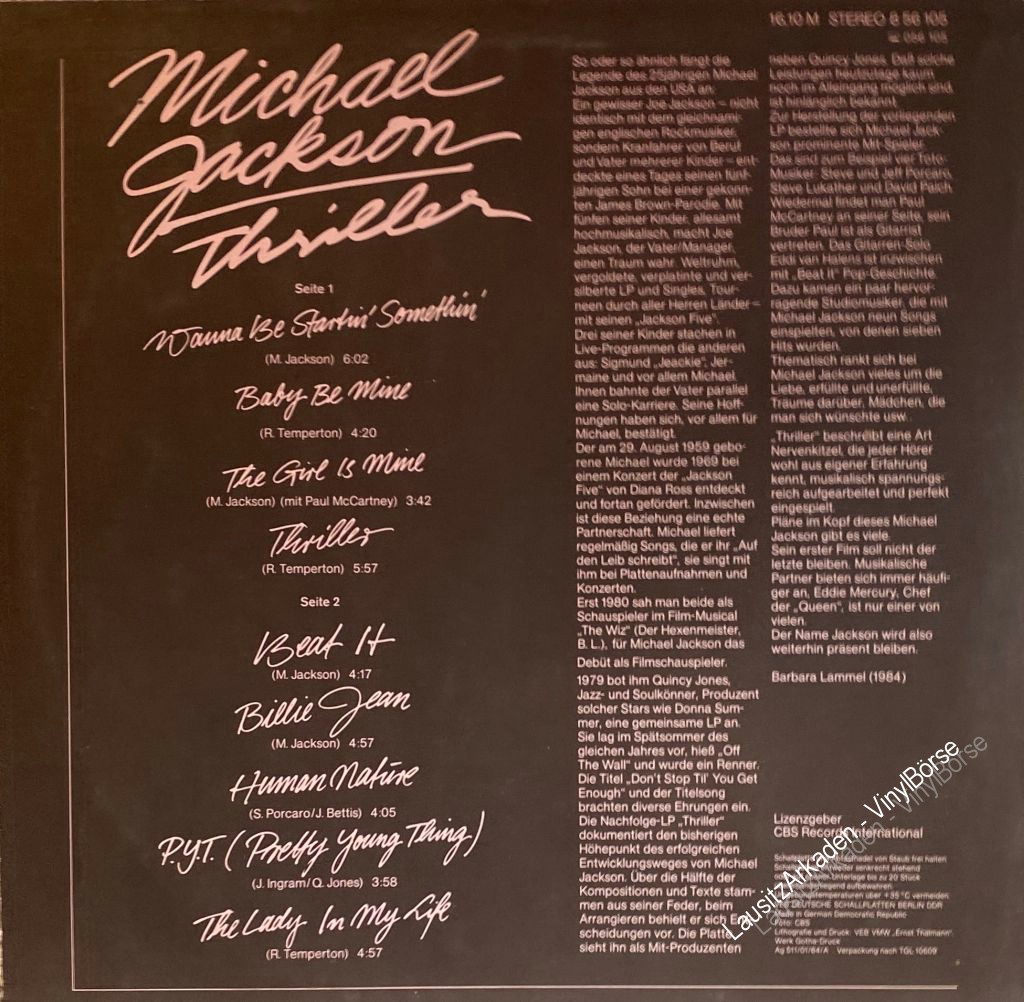 16,10 M STEREO 8 56 105
Michael
Jackson
Thriller
Seite 1
Wanna Be Startin' Somethin'
(M. Jackson) 6:02
Baby Be Mine
(R. Temperton) 4:20
The Girl Is Mine
(M. Jackson) (mit Paul McCartney) 3:42
Thriller
(R. Temperton) 5:57
Seite 2
Beat It
(M. Jackson) 4:17
Billie Jean
(M. Jackson) 4:57
Human Nature
(S. Porcaro/J. Bettis) 4:05
P.Y.T. (Pretty Young Thing)
(J. Ingram/Q. Jones) 3:58
The Lady In My Life
(R. Temperton) 4:57
So oder so ähnlich fängt die
Legende des 25jährigen Michael
Jackson aus den USA an:
Ein gewisser Joe Jackson – nicht
identisch mit dem gleichnami-
gen englischen Rockmusiker,
sondern Kranfahrer von Beruf
und Vater mehrerer Kinder – ent-
deckte eines Tages seinen fünf-
jährigen Sohn bei einer gekonn-
ten James Brown-Parodie. Mit
fünfen seiner Kinder, allesamt
hochmusikalisch, macht Joe
Jackson, der Vater/Manager,
einen Traum wahr. Weltruhm,
vergoldete, verplatinte und ver-
silberte LP und Singles, Tour-
neen durch aller Herren Länder –
mit seinen „Jackson Five“.
Drei seiner Kinder stachen in
Live-Programmen die anderen
aus: Sigmund „Jeackie“, Jer-
maine und vor allem Michael.
Ihnen bahnte der Vater parallel
eine Solo-Karriere. Seine Hoff-
nungen haben sich, vor allem für
Michael, bestätigt.
Der am 29. August 1959 gebo-
rene Michael wurde 1969 bei
einem Konzert der „Jackson
Five“ von Diana Ross entdeckt
und fortan gefördert. Inzwischen
ist diese Beziehung eine echte
Partnerschaft. Michael liefert
regelmäßig Songs, die er ihr „Auf
den Leib schreibt“, sie singt mit
ihm bei Plattenaufnahmen und
Konzerten.
Erst 1980 sah man beide als
Schauspieler im Film-Musical
„The Wiz“ (Der Hexenmeister,
B. L.), für Michael Jackson das
Debüt als Filmschauspieler.
1979 bot ihm Quincy Jones,
Jazz- und Soulkönner, Produzent
solcher Stars wie Donna Sum-
mer, eine gemeinsame LP an.
Sie lag im Spätsommer des
gleichen Jahres vor, hieß „Off
The Wall“ und wurde ein Renner.
Die Titel „Don't Stop Til' You Get
Enough“ und der Titelsong
brachten diverse Ehrungen ein.
Die Nachfolge-LP „Thriller“
dokumentiert den bisherigen
Höhepunkt des erfolgreichen
Entwicklungsweges von Michael
Jackson. Über die Hälfte der
Kompositionen und Texte stam-
men aus seiner Feder, beim
Arrangieren behielt er sich Ent-
scheidungen vor. Die Platte
sieht ihn als Mit-Produzenten
neben Quincy Jones. Daß solche
Leistungen heutzutage kaum
noch im Alleingang möglich sind,
ist hinlänglich bekannt.
Zur Herstellung der vorliegenden
LP bestellte sich Michael Jack-
son prominente Mit-Spieler.
Das sind zum Beispiel vier Toto-
Musiker: Steve und Jeff Porcaro,
Steve Lukather und David Paich.
Wiedermal findet man Paul
McCartney an seiner Seite, sein
Bruder Paul ist als Gitarrist
vertreten. Das Gitarren-Solo
Eddi van Halens ist inzwischen
mit „Beat It“ Pop-Geschichte.
Dazu kamen ein paar hervor-
ragende Studiomusiker, die mit
Michael Jackson neun Songs
einspielten, von denen sieben
Hits wurden.
Thematisch rankt sich bei
Michael Jackson vieles um die
Liebe, erfüllte und unerfüllte,
Träume darüber, Mädchen, die
man sich wünschte usw.
„Thriller“ beschreibt eine Art
Nervenkitzel, die jeder Hörer
wohl aus eigener Erfahrung
kennt, musikalisch spannungs-
reich aufgearbeitet und perfekt
eingespielt.
Pläne im Kopf dieses Michael
Jackson gibt es viele.
Sein erster Film soll nicht der
letzte bleiben. Musikalische
Partner bieten sich immer häufi-
ger an, Eddie Mercury, Chef
der „Queen“, ist nur einer von
vielen.
Der Name Jackson wird also
weiterhin präsent bleiben.
Barbara Lammel (1984)
Lizenzgeber
CBS Records International
von Staub frei halten
senkrecht stehend
Unterlage bis zu 20 Stück
aufbewahren
über +35°C vermeiden
VEB DEUTSCHE SCHALLPLATTEN BERLIN DDR
Made in German Democratic Republic
Foto: CBS
Lithografie und Druck: VEB VMW „Ernst Thälmann“
Werk Gotha-Druck
Ag 511/01/84/A Verpackung nach TGL 10609
LausitzArkaden - VinylBörse